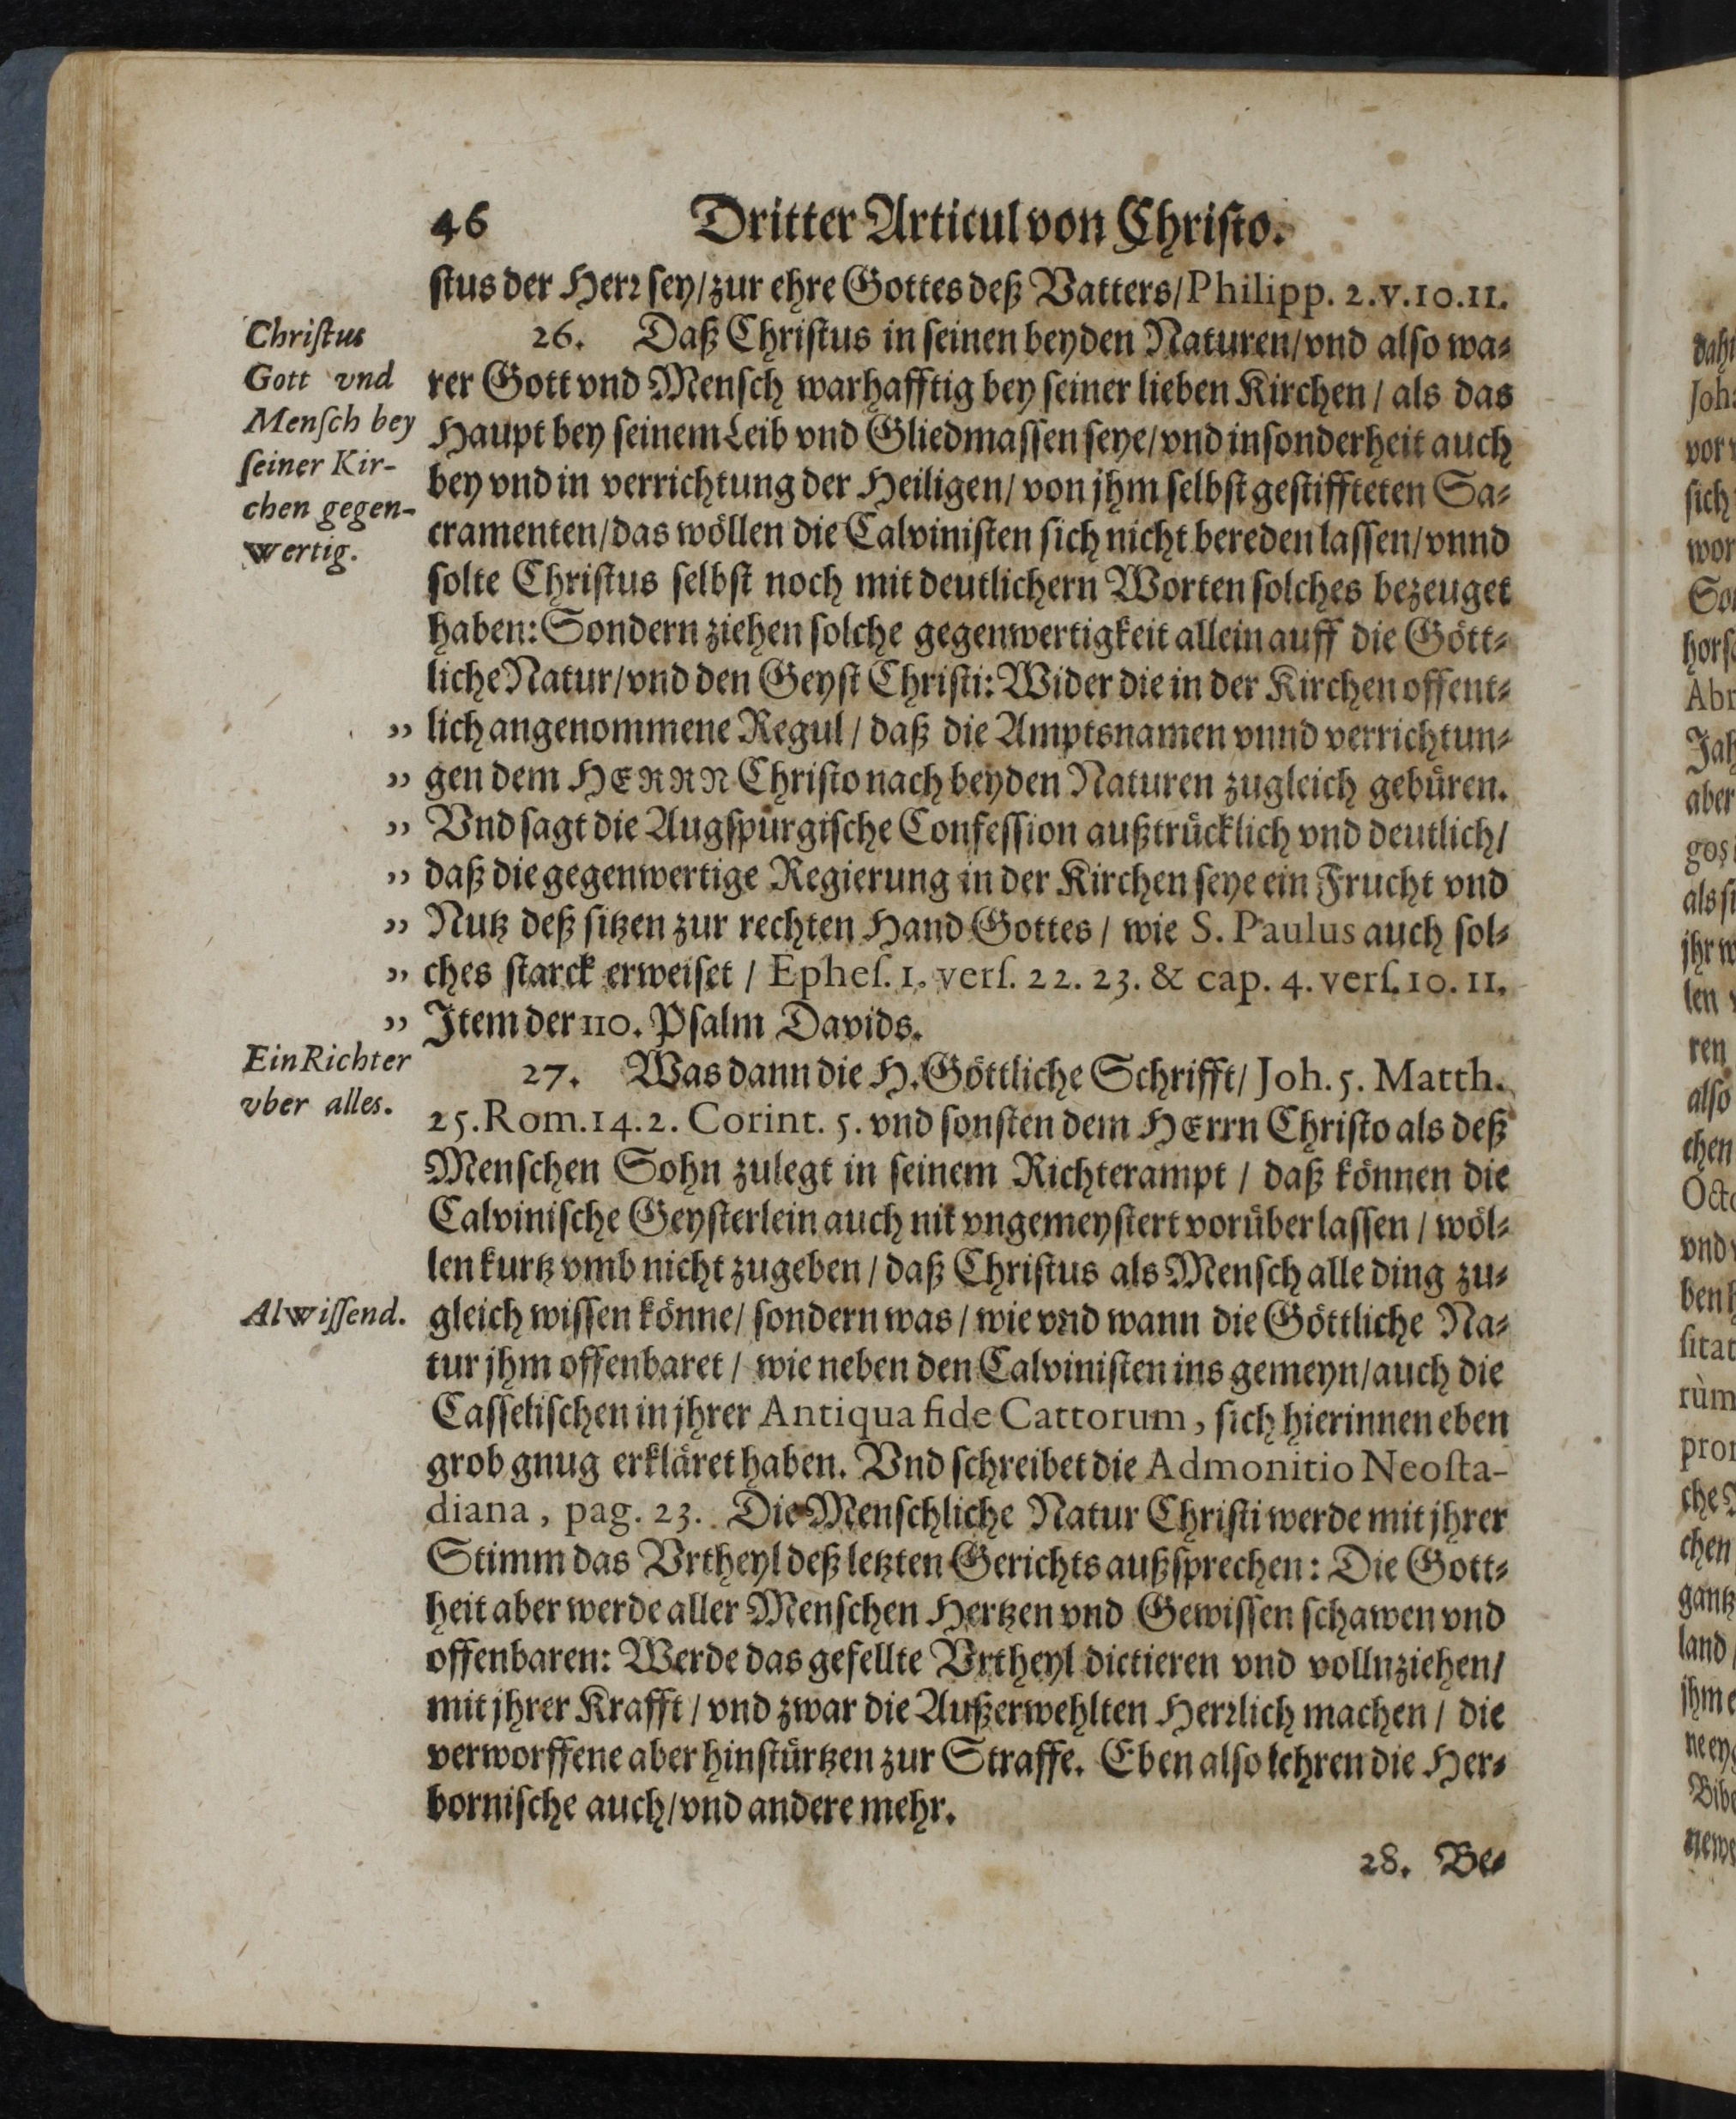 46 Dritter Articul von Christo.
stus der Herr sey/zur ehre Gottes deß Vatters/Philipp. 2.v.10.11.
Christus
Gott vnd
Mensch bey
seiner Kir-
chen gegen-
wertig.
26. Daß Christus in seinen beyden Naturen/vnd also wa-
rer Gott vnd Mensch warhafftig bey seiner lieben Kirchen / als das
Haupt bey seinem Leib vnd Gliedmassen seye/vnd insonderheit auch
bey vnd in verrichtung der Heiligen/ von jhm selbst gestiffteten Sa-
cramenten/das wöllen die Calvinisten sich nicht bereden lassen/vnnd
solte Christus selbst noch mit deutlichern Worten solches bezeuget
haben: Sondern ziehen solche gegenwertigkeit allein auff die Gött-
liche Natur/vnd den Geyst Christi: Wider die in der Kirchen offent-
„ lich angenommene Regul / daß die Amptsnamen vnnd verrichtun-
„ gen dem HERRN Christo nach beyden Naturen zugleich gebüren.
„ Vnd sagt die Augspurgische Confession außtrücklich vnd deutlich/
„ daß die gegenwertige Regierung in der Kirchen seye ein Frucht vnd
„ Nutz deß sitzen zur rechten Hand Gottes / wie S. Paulus auch sol-
„ ches starck erweiset / Ephes. 1. vers. 22. 23. & cap. 4. vers. 10. 11.
„ Item der 110. Psalm Davids.
Ein Richter
vber alles.
27. Was dann die H. Göttliche Schrifft/ Joh. 5. Matth.
25. Rom. 14. 2. Corint. 5. vnd sonsten dem HErrn Christo als deß
Menschen Sohn zulegt in seinem Richterampt / daß können die
Calvinische Geysterlein auch nit vngemeystert vorüber lassen / wöl-
len kurtz vmb nicht zugeben / daß Christus als Mensch alle ding zu-
Alwissend.
gleich wissen könne/ sondern was / wie vnd wann die Göttliche Na-
tur jhm offenbaret / wie neben den Calvinisten ins gemeyn/auch die
Casselischen in jhrer Antiqua fide Cattorum, sich hierinnen eben
grob gnug erkläret haben. Vnd schreibet die Admonitio Neosta-
diana, pag. 23. Die Menschliche Natur Christi werde mit jhrer
Stimm das Vrtheyl deß letzten Gerichts außsprechen: Die Gott-
heit aber werde aller Menschen Hertzen vnd Gewissen schawen vnd
offenbaren: Werde das gefellte Vrtheyl dictieren vnd vollnziehen/
mit jhrer Krafft / vnd zwar die Außerwehlten Herrlich machen / die
verworffene aber hinstürtzen zur Straffe. Eben also lehren die Her-
bornische auch/vnd andere mehr.
28. Be-